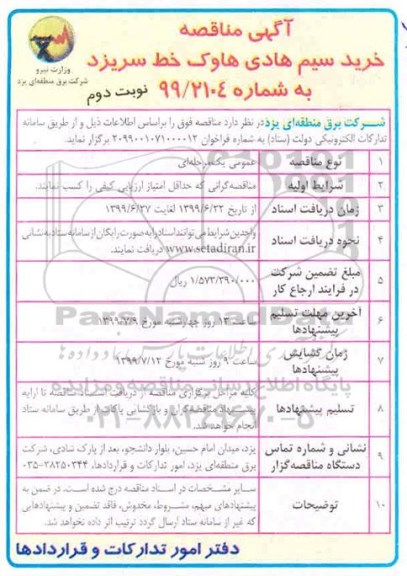 آگهی مناقصه
خرید سیم هادی هاوک خط سریزد
به شماره ۹۹/۲۱۰۴
نوبت دوم
وزارت نیرو
شرکت برق منطقه‌ای یزد
شرکت برق منطقه‌ای یزد در نظر دارد مناقصه فوق را براساس اطلاعات ذیل و از طریق سامانه
تدارکات الکترونیکی دولت (ستاد) به شماره فراخوان ۲۰۹۹۰۰۱۰۷۱۰۰۰۰۱۲ برگزار نماید.
۱ نوع مناقصه عمومی یک‌مرحله‌ای
۲ شرایط اولیه مناقصه‌گرانی که حداقل امتیاز ارزیابی کیفی را کسب نمایند.
۳ زمان دریافت اسناد از تاریخ ۱۳۹۹/۶/۲۲ لغایت ۱۳۹۹/۶/۲۷
۴ نحوه دریافت اسناد واجدین شرایط می‌توانند اسناد را به صورت رایگان از سامانه ستاد به نشانی
www.setadiran.ir دریافت نمایند.
۵ مبلغ تضمین شرکت
در فرایند ارجاع کار
۱/۵۷۳/۳۹۰/۰۰۰ ریال
۶ آخرین مهلت تسلیم
پیشنهادها
ساعت ۱۳ روز چهارشنبه مورخ ۱۳۹۹/۷/۹
۷ زمان گشایش
پیشنهادها
ساعت ۹ روز شنبه مورخ ۱۳۹۹/۷/۱۲
۸ تسلیم پیشنهادها
کلیه مراحل برگزاری مناقصه از دریافت اسناد مناقصه تا ارایه
پیشنهاد مناقصه‌گران و بازگشایی پاکات از طریق سامانه ستاد
انجام خواهد شد.
۹ نشانی و شماره تماس
دستگاه مناقصه‌گزار
یزد، میدان امام حسین، بلوار دانشجو، بعد از پارک شادی، شرکت
برق منطقه‌ای یزد، امور تدارکات و قراردادها، ۳۸۲۵۰۳۴۴-۰۳۵
۱۰ توضیحات
سایر مشخصات در اسناد مناقصه درج شده است. در ضمن به
پیشنهادهای مبهم، مشروط، مخدوش، فاقد تضمین و پیشنهادهایی
که غیر از سامانه ستاد ارسال گردد ترتیب اثر داده نخواهد شد.
دفتر امور تدارکات و قراردادها
ParsNamadData
پایگاه اطلاع رسانی مناقصه و مزایده
۰۲۱-۸۸۳۴۹۶۷۰-۵